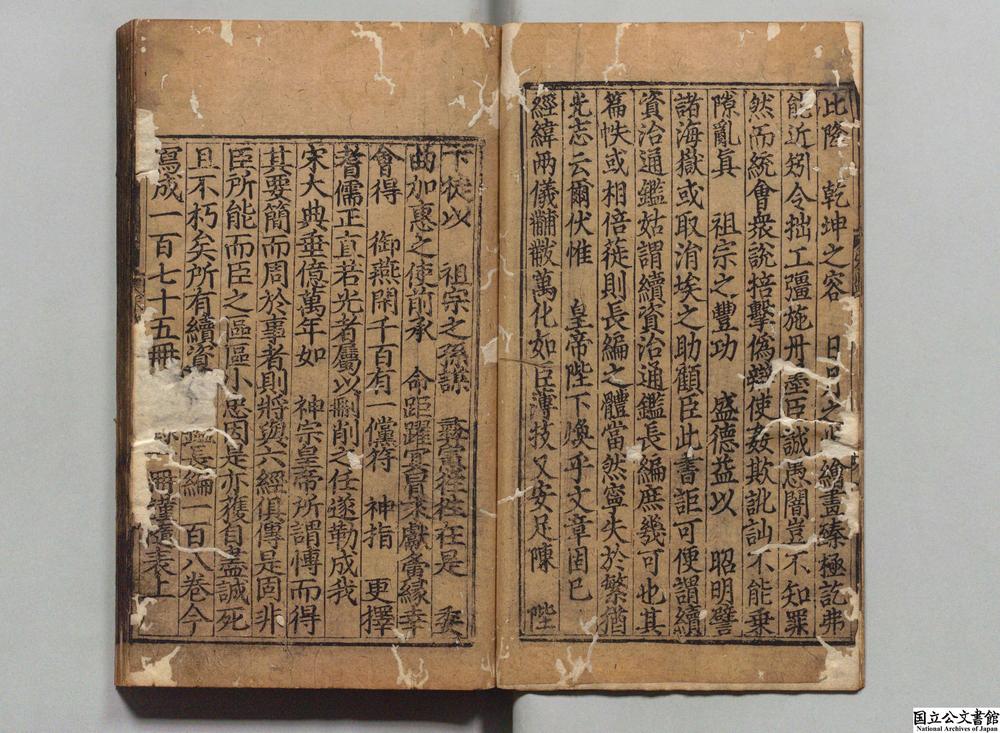 此隆 乾坤之容 日月之光繪畫臻極訖弗
能近矧令拙工彊施丹墨臣誠愚闇豈不知罪
然而統會衆說掊擊僞辯使姦欺訛訕不能乗
隙亂眞 祖宗之豐功 盛德益以 昭明譬
諸海嶽或取涓埃之助顧臣此書詎可便謂續
資治通鑑姑謂續資治通鑑長編庶幾可也其
篇帙或相倍蓰則長編之體當然寧失於繁猶
光志云爾伏惟 皇帝陛下煥乎文章固已
經緯兩儀黼黻萬化如臣薄技又安足陳 陛
下從以 祖宗之孫謀 彝憲往往在是 奬
曲加惠之使前承 命距躍冥冒來獻當緣幸
會得 御燕閑千百有一儻符 神指 更擇
耆儒正直若光者屬以刪削之任遂勒成我
宋大典垂億萬年如 神宗皇帝所謂博而得
其要簡而周於事者則將與六經俱傳是固非
臣所能而臣之區區小忠因是亦獲自盡誠死
且不朽矣所有續資 鑑長編一百八卷今
寫成一百七十五冊 一冊謹隨表上
国立公文書館
National Archives of Japan